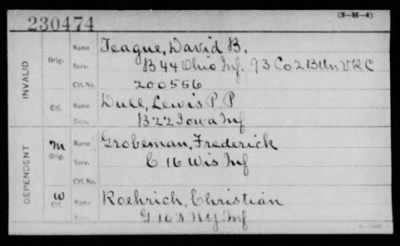 230474
(3-H-4)
INVALID
Orig.
Name Teague, David B.
Serv. B 44 Ohio Inf. 93 Co 2 B Un V R C
Ctf. No. 200556
Ctf.
Name Dull, Lewis P P
Serv. B 22 Iowa Inf
DEPENDENT
M
Orig.
Name Grobeman, Frederick
Serv. C 16 Wis Inf
Ctf. No.
W
Ctf.
Name Roehrich, Christian
Serv. G 103 NY Inf